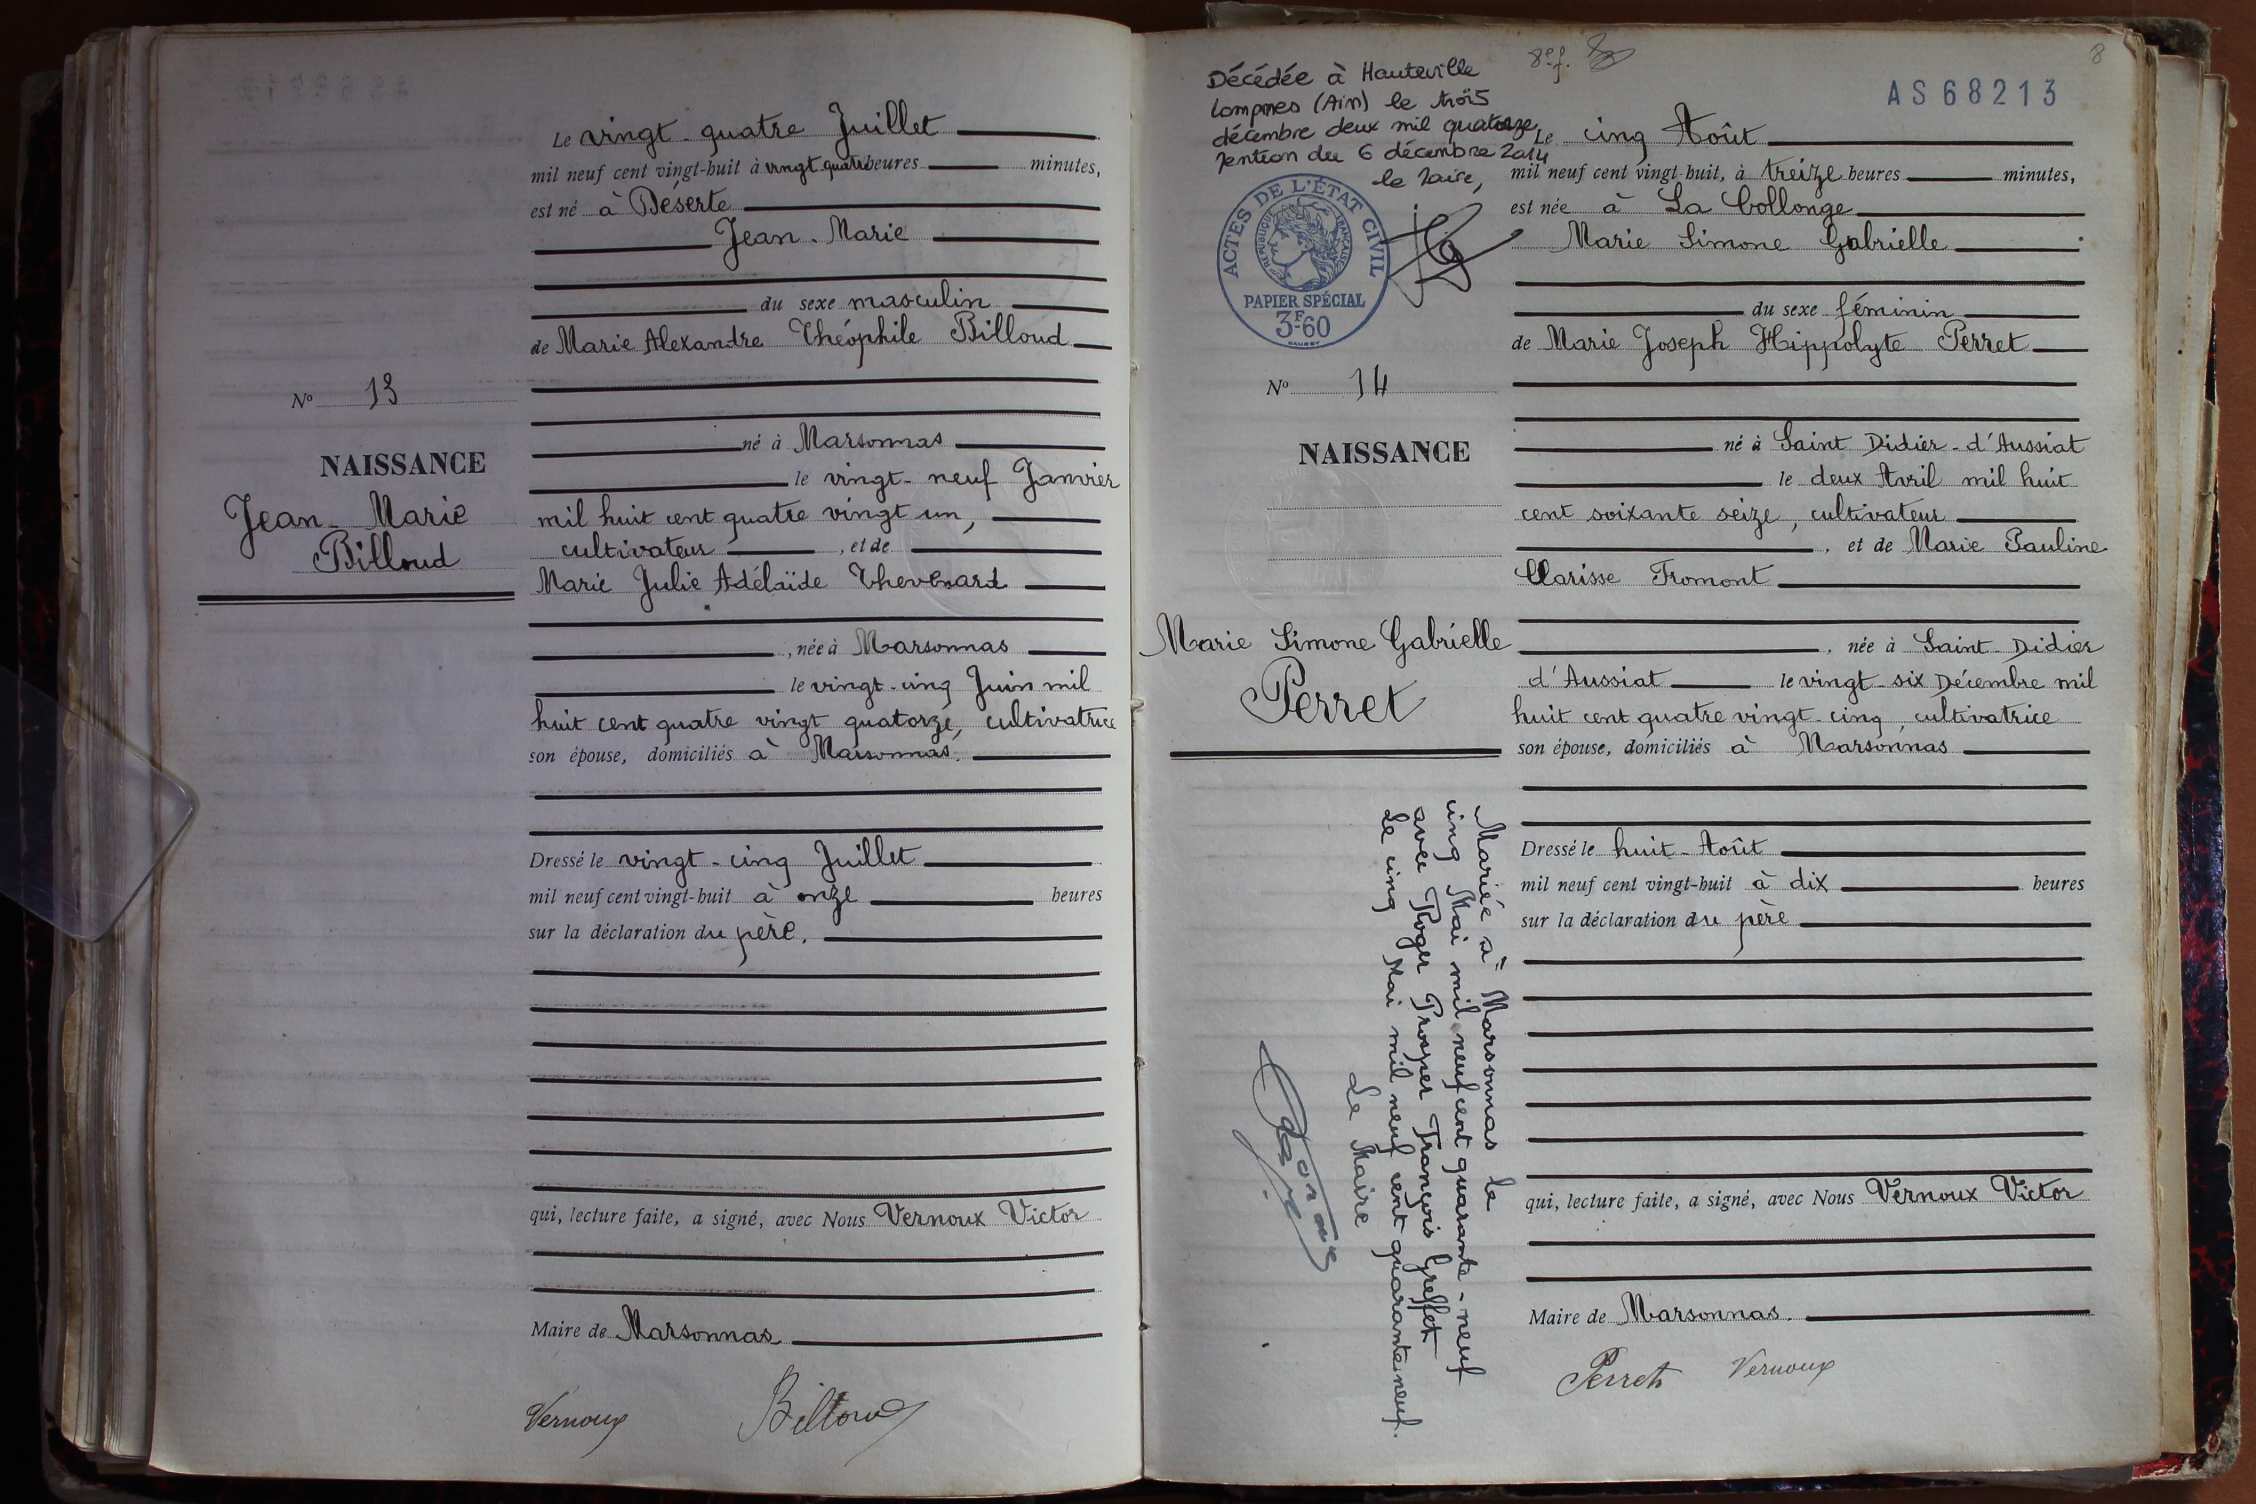 Le vingt-quatre Juillet
mil neuf cent vingt-huit à vingt quatre heures minutes,
est né à Béserte
Jean-Marie
du sexe masculin
de Marie Alexandre Théophile Billoud
né à Marsonnas
le vingt-neuf Janvier
mil huit cent quatre vingt un,
cultivateur , et de
Marie Julie Adélaïde Thevenard
, née à Marsonnas
le vingt-cinq Juin mil
huit cent quatre vingt quatorze, cultivatrice
son épouse, domiciliés à Marsonnas.
Dressé le vingt-cinq Juillet
mil neuf cent vingt-huit à onze heures
sur la déclaration du père.
qui, lecture faite, a signé, avec Nous Vernoux Victor
Maire de Marsonnas
Vernoux Billoud
No 13
NAISSANCE
Jean-Marie
Billoud
8
AS68213
Décédée à Hauteville
Lompnes (Ain) le trois
décembre deux mil quatorze
mention du 6 décembre 2014
le Maire,
ACTES DE L'ÉTAT CIVIL
RÉPUBLIQUE FRANÇAISE
PAPIER SPÉCIAL
3F-60
No 14
NAISSANCE
Marie Simone Gabrielle
Perret
Mariée à Marsonnas le
cinq Mai mil neuf cent quarante-neuf
avec Roger Prosper François Greffet
Le cinq Mai mil neuf cent quarante neuf.
Le Maire
Le cinq Août
mil neuf cent vingt-huit, à treize heures minutes,
est née à La Collonge
Marie Simone Gabrielle
du sexe féminin
de Marie Joseph Hippolyte Perret
né à Saint Didier-d'Aussiat
le deux Avril mil huit
cent soixante seize, cultivateur
, et de Marie Pauline
Clarisse Fromont
, née à Saint-Didier
d'Aussiat le vingt-six Décembre mil
huit cent quatre vingt-cinq, cultivatrice
son épouse, domiciliés à Marsonnas
Dressé le huit-Août
mil neuf cent vingt-huit à dix heures
sur la déclaration du père
qui, lecture faite, a signé, avec Nous Vernoux Victor
Maire de Marsonnas.
Perret Vernoux